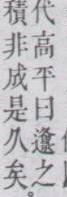 代高平曰邍之
積非成是久矣